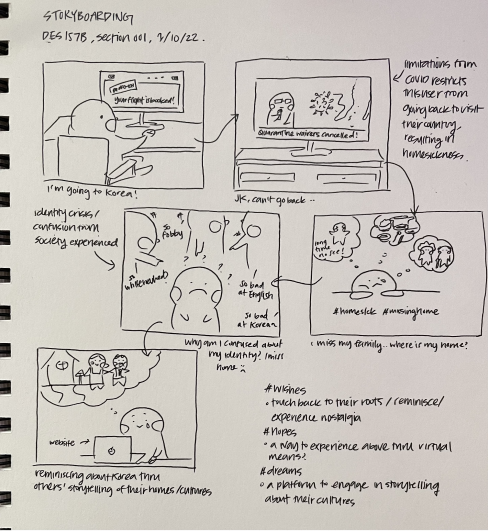 STORYBOARDING
DES 157B, section 001, 2/10/22.
your flight is booked!
I'm going to Korea!
Quarantine waivers cancelled!
JK, can't go back..
limitations from
covid restricts
this user from
going back to visit
their country,
resulting in
homesickness.
long
time
no see!
#homesick #missinghome
i miss my family.. where is my home?
identity crisis/
confusion from
society experienced
so
whitewashed
so
fobby
so bad
at English
so bad
at Korean
why am I confused about
my identity? I miss
home
website
reminiscing about Korea thru
others' storytelling of their homes/cultures
#wishes
• touch back to their roots / reminisce/
experience nostalgia
#hopes
• a way to experience above thru virtual
means?
#dreams
• a platform to engage in storytelling
about their cultures